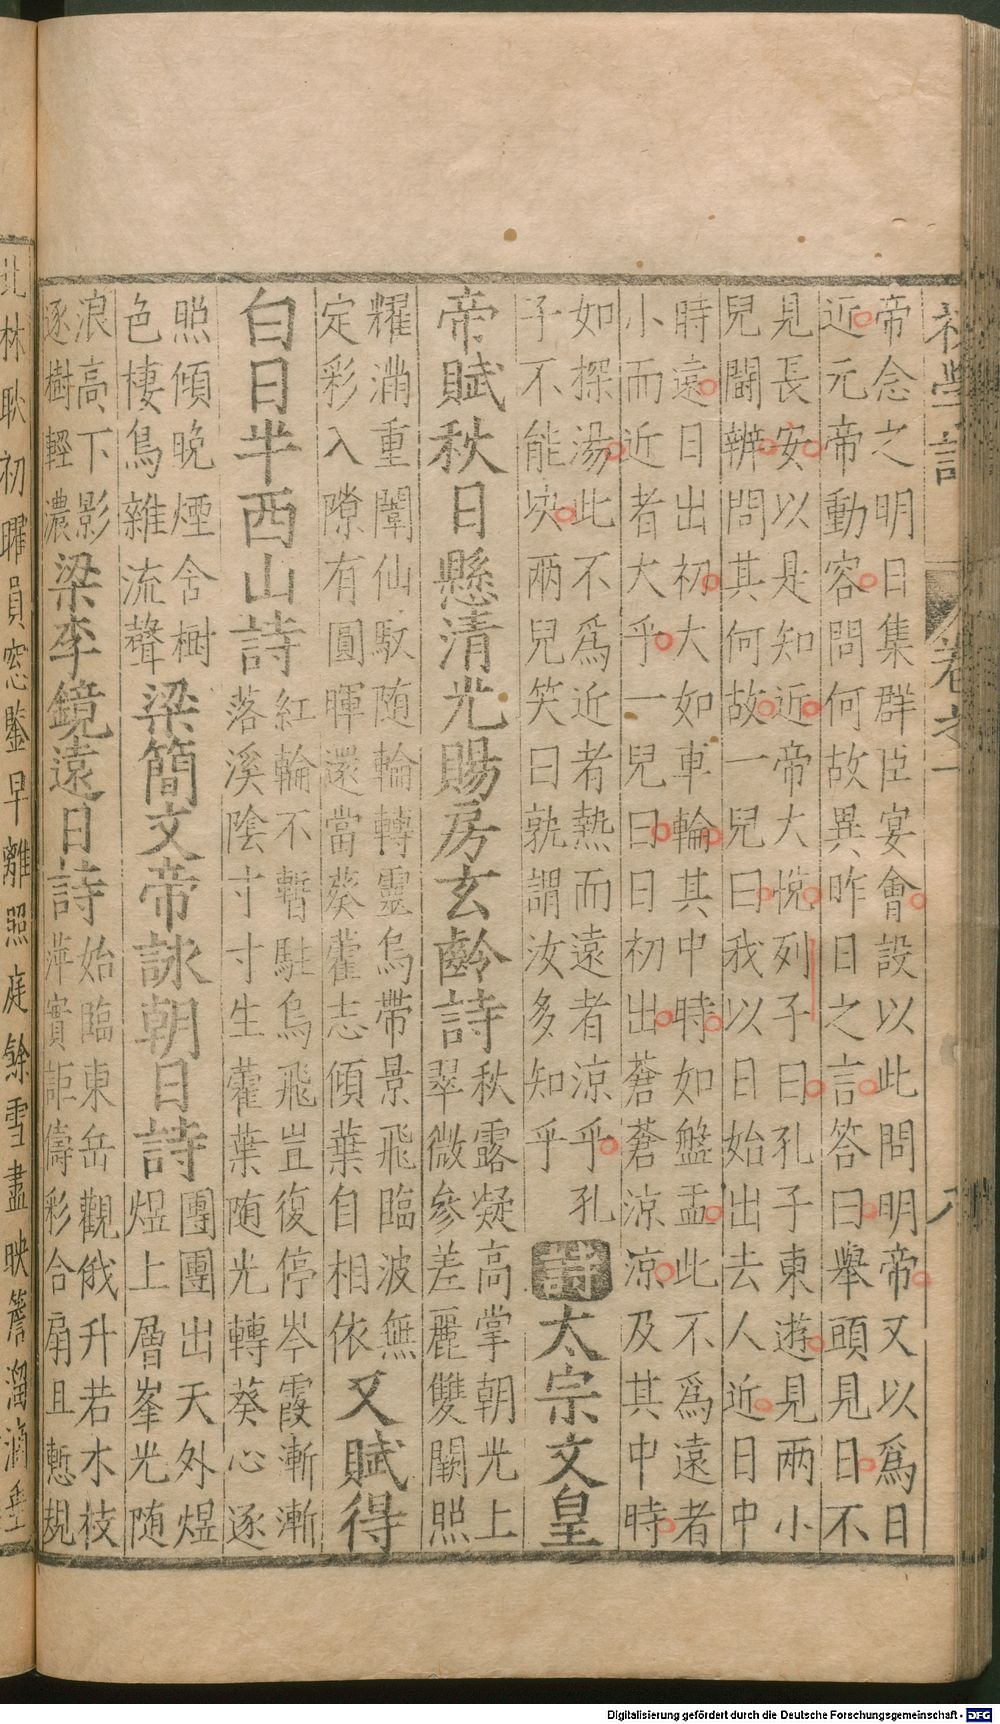 初學記 卷之一 八
帝念之明日集群臣宴會設以此問明帝又以爲日
近元帝動容問何故異昨日之言答曰舉頭見日不
見長安以是知近帝大悅列子曰孔子東遊見兩小
兒鬭辨問其何故一兒曰我以日始出去人近日中
時遠日出初大如車輪其中時如盤盂此不爲遠者
小而近者大乎一兒曰日初出蒼蒼涼涼及其中時
如探湯此不爲近者熱而遠者涼乎孔
子不能決兩兒笑曰孰謂汝多知乎
詩太宗文皇
帝賦秋日懸清光賜房玄齡詩
秋露凝高掌朝光上
翠微參差麗雙闕照
耀滿重闈仙馭随輪轉靈烏帶景飛臨波無
定彩入隙有圓暉還當葵藿志傾葉自相依
又賦得
白日半西山詩
紅輪不暫駐烏飛豈復停岑霞漸漸
落溪陰寸寸生藿葉随光轉葵心逐
照傾晚煙含樹
色棲鳥雜流聲
梁簡文帝詠朝日詩
團團出天外煜
煜上層峯光随
浪高下影
逐樹輕濃
梁李鏡遠日詩
始臨東岳觀俄升若木枝
萍實詎儔彩合扇且慙規
林耿初曜員窓鑒早離照庭餘雪盡映簷溜滴垂
Digitalisierung gefördert durch die Deutsche Forschungsgemeinschaft - DFG